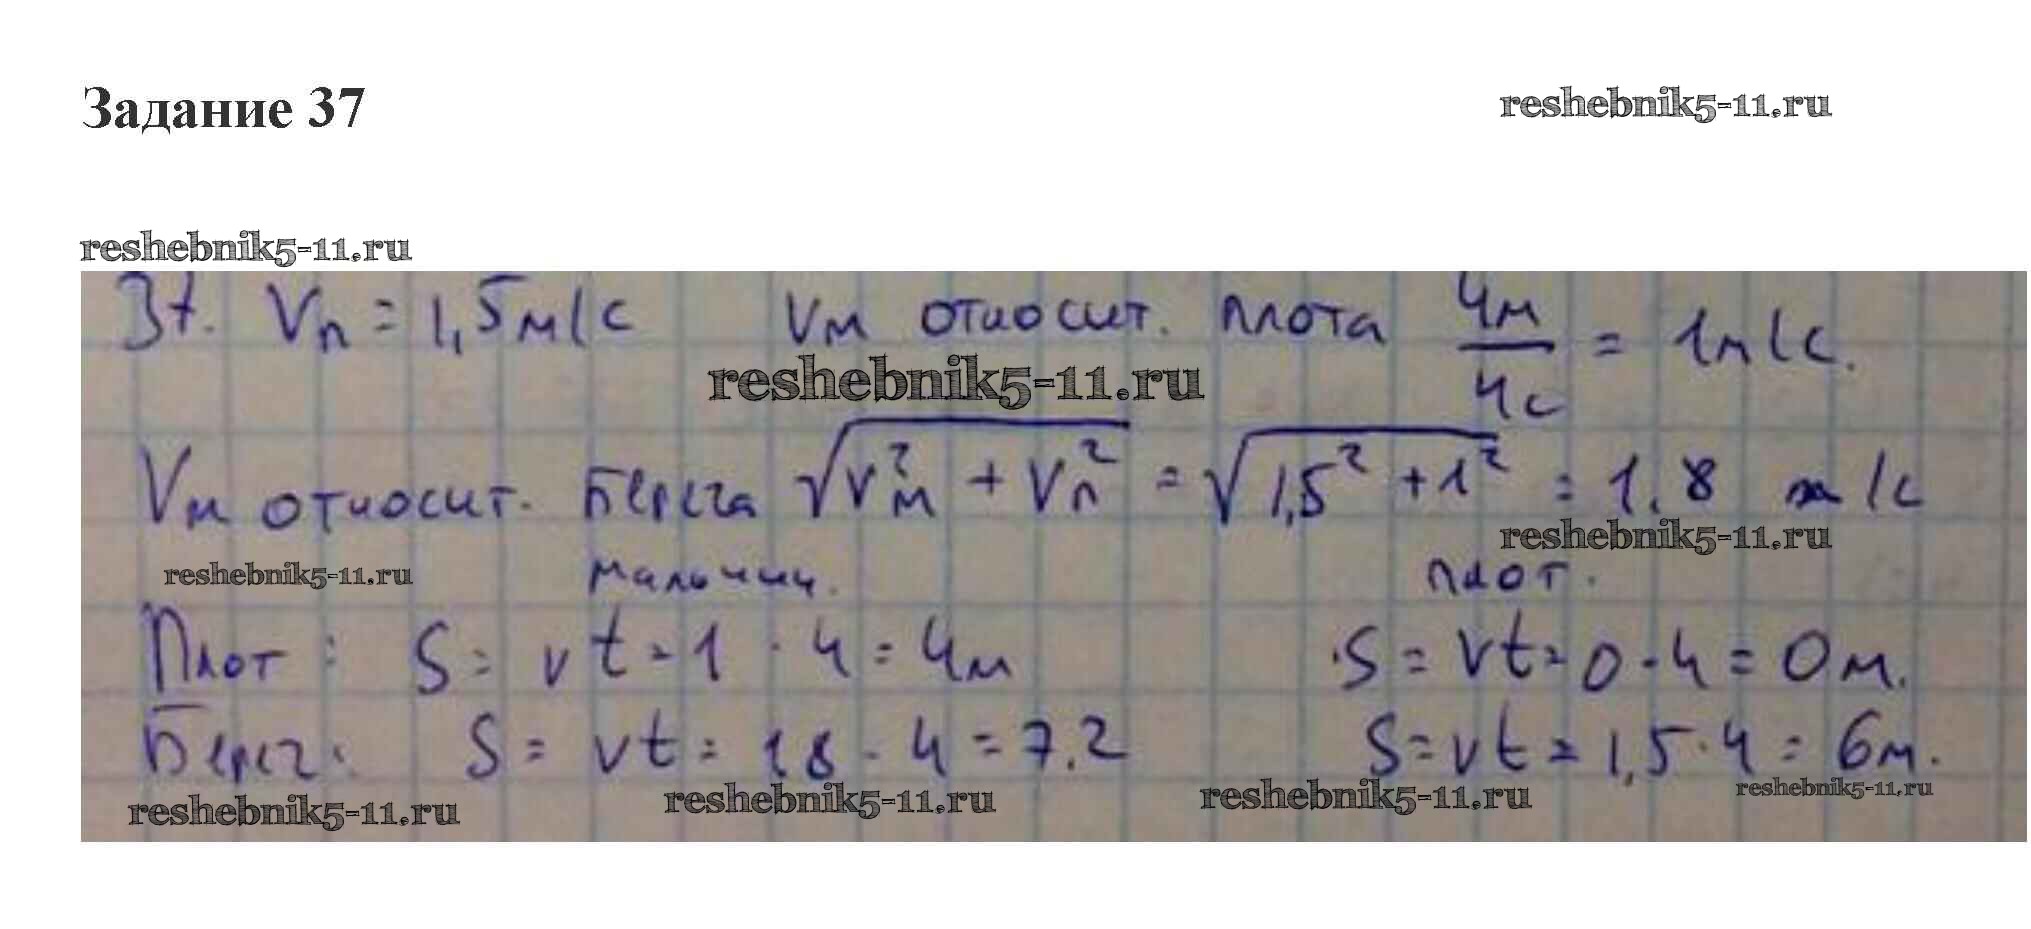 Задание 37
reshebnik5-11.ru
reshebnik5-11.ru
37. Vп = 1,5 м/с Vм относит. плота 4м/4с = 1м/с.
reshebnik5-11.ru
Vм относит. Берега √(Vм² + Vп²) = √(1,5² + 1²) = 1.8 м/с
reshebnik5-11.ru
reshebnik5-11.ru мальчик. плот.
Плот: S = vt = 1 · 4 = 4м S = vt = 0 · 4 = 0м.
Берег: S = vt = 1.8 · 4 = 7.2 S = vt = 1,5 · 4 = 6м.
reshebnik5-11.ru reshebnik5-11.ru reshebnik5-11.ru reshebnik5-11.ru